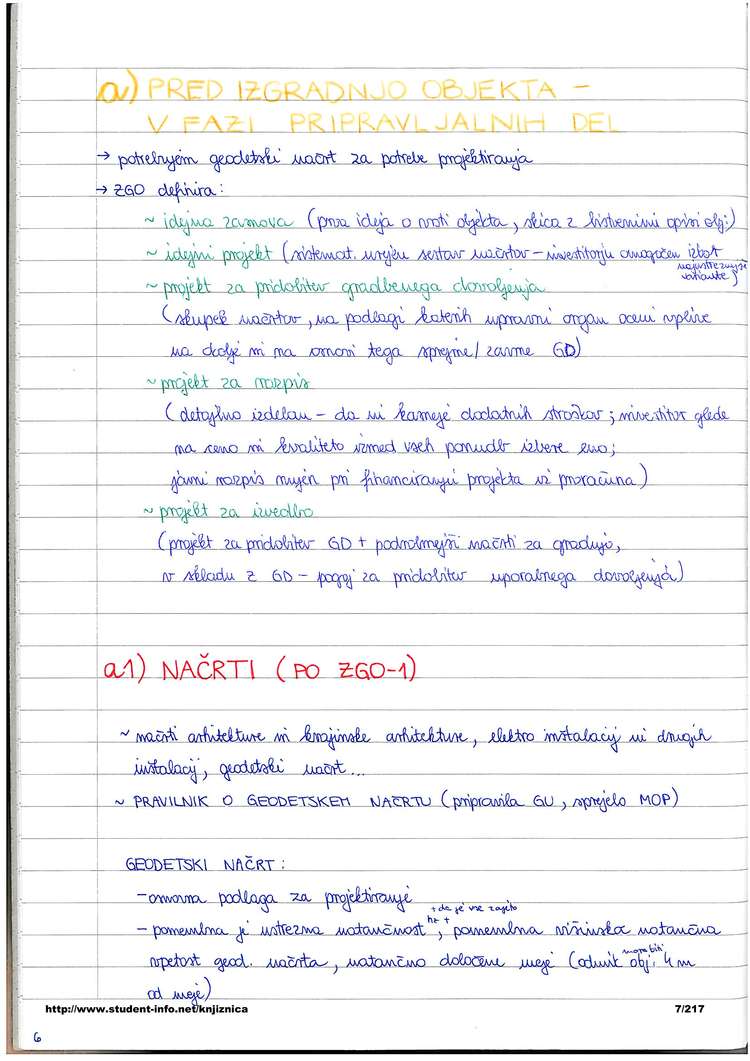 a) PRED IZGRADNJO OBJEKTA -
V FAZI PRIPRAVLJALNIH DEL
→ potrebujem geodetski načrt za potrebe projektiranja
→ ZGO definira:
~ idejna zasnova (prva ideja o vrsti objekta, skica z bistvenimi opisi obj.)
~ idejni projekt (sistemat. urejen sestav načrtov - investitorju omogočen izbor
najustreznejše
variante)
~ projekt za pridobitev gradbenega dovoljenja
(skupek načrtov, na podlagi katerih upravni organ oceni vplive
na okolje in na osnovi tega sprejme/zavrne GD)
~ projekt za razpis
(detajlno izdelan - da ni kasneje dodatnih stroškov; investitor glede
na ceno in kvaliteto izmed vseh ponudb izbere eno;
javni razpis nujen pri financiranju projekta iz proračuna)
~ projekt za izvedbo
(projekt za pridobitev GD + podrobnejši načrti za gradnjo,
v skladu z GD - pogoj za pridobitev uporabnega dovoljenja)
a1) NAČRTI (PO ZGO-1)
~ načrti arhitekture in krajinske arhitekture, elektro instalacij in drugih
instalacij, geodetski načrt...
~ PRAVILNIK O GEODETSKEM NAČRTU (pripravila GU, sprejelo MOP)
GEODETSKI NAČRT:
- osnovna podlaga za projektiranje
+ da je vse zajeto
- pomembna je ustrezna natančnost, pomembna višinska natančna
vpetost geod. načrta, natančno določene meje (odmik obj. mora biti 4 m
od meje)
http://www.student-info.net/knjiznica
7/217
6